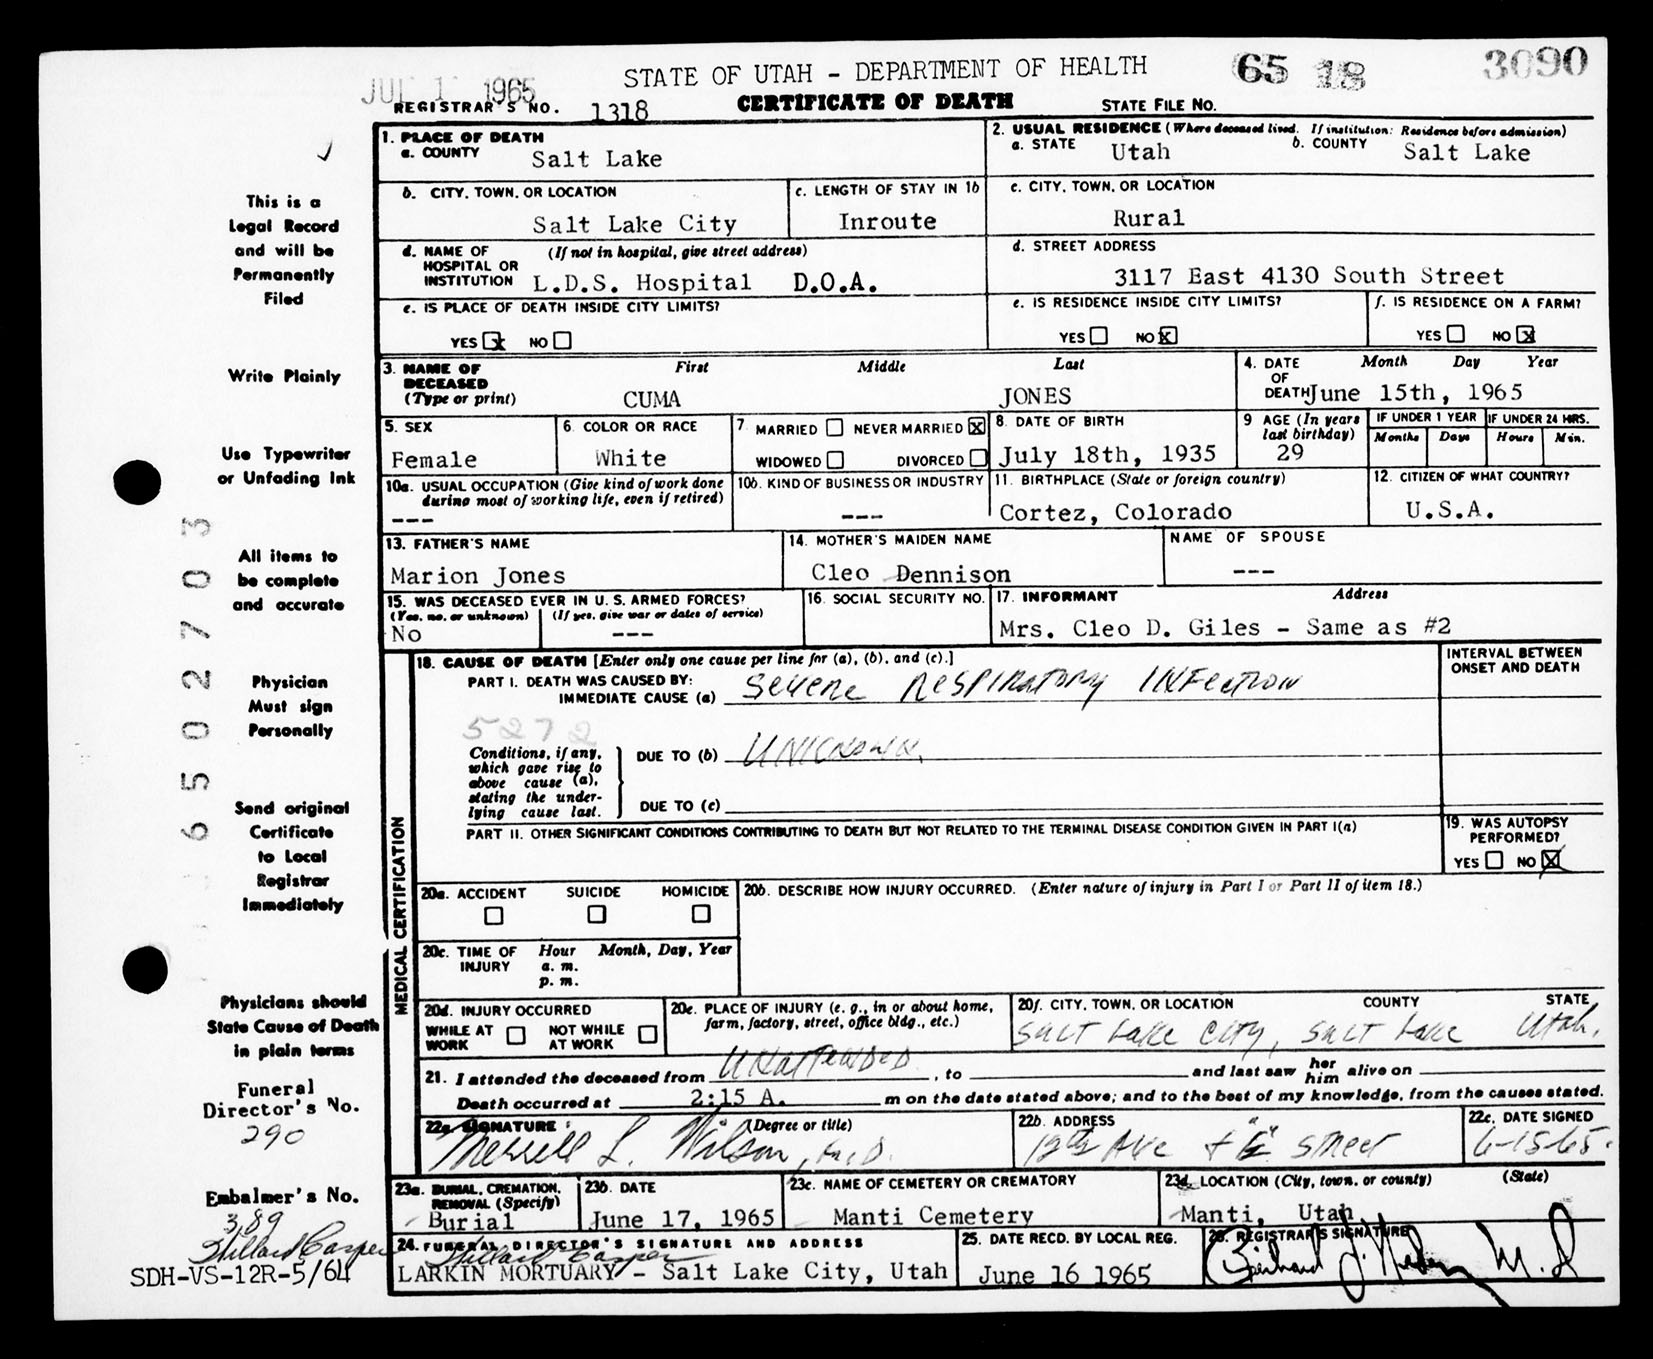 JUL 1 1965
STATE OF UTAH - DEPARTMENT OF HEALTH
65 18 3090
REGISTRAR'S NO. 1318 CERTIFICATE OF DEATH STATE FILE NO.
1. PLACE OF DEATH
a. COUNTY Salt Lake
2. USUAL RESIDENCE (Where deceased lived. If institution: Residence before admission)
a. STATE Utah b. COUNTY Salt Lake
b. CITY, TOWN, OR LOCATION
Salt Lake City
c. LENGTH OF STAY IN 1b
Inroute
c. CITY, TOWN, OR LOCATION
Rural
d. NAME OF HOSPITAL OR INSTITUTION (If not in hospital, give street address)
L.D.S. Hospital D.O.A.
d. STREET ADDRESS
3117 East 4130 South Street
e. IS PLACE OF DEATH INSIDE CITY LIMITS?
YES X NO
e. IS RESIDENCE INSIDE CITY LIMITS?
YES NO X
f. IS RESIDENCE ON A FARM?
YES NO X
3. NAME OF DECEASED (Type or print) First Middle Last
CUMA JONES
4. DATE OF DEATH Month Day Year
June 15th, 1965
5. SEX
Female
6. COLOR OR RACE
White
7. MARRIED NEVER MARRIED X
WIDOWED DIVORCED
8. DATE OF BIRTH
July 18th, 1935
9 AGE (In years last birthday)
29
IF UNDER 1 YEAR IF UNDER 24 HRS.
Months Days Hours Min.
10a. USUAL OCCUPATION (Give kind of work done during most of working life, even if retired)
---
10b. KIND OF BUSINESS OR INDUSTRY
---
11. BIRTHPLACE (State or foreign country)
Cortez, Colorado
12. CITIZEN OF WHAT COUNTRY?
U.S.A.
13. FATHER'S NAME
Marion Jones
14. MOTHER'S MAIDEN NAME
Cleo Dennison
NAME OF SPOUSE
---
15. WAS DECEASED EVER IN U. S. ARMED FORCES?
(Yes, no, or unknown) (If yes, give war or dates of service)
No ---
16. SOCIAL SECURITY NO.
17. INFORMANT Address
Mrs. Cleo D. Giles - Same as #2
MEDICAL CERTIFICATION
18. CAUSE OF DEATH [Enter only one cause per line for (a), (b), and (c).]
INTERVAL BETWEEN ONSET AND DEATH
PART I. DEATH WAS CAUSED BY:
IMMEDIATE CAUSE (a) Severe Respiratory Infection
5272
Conditions, if any, which gave rise to above cause (a), stating the underlying cause last.
DUE TO (b) Unknown
DUE TO (c)
PART II. OTHER SIGNIFICANT CONDITIONS CONTRIBUTING TO DEATH BUT NOT RELATED TO THE TERMINAL DISEASE CONDITION GIVEN IN PART I(a)
19. WAS AUTOPSY PERFORMED?
YES NO X
20a. ACCIDENT SUICIDE HOMICIDE
20b. DESCRIBE HOW INJURY OCCURRED. (Enter nature of injury in Part I or Part II of item 18.)
20c. TIME OF INJURY Hour Month, Day, Year
a. m.
p. m.
20d. INJURY OCCURRED
WHILE AT WORK NOT WHILE AT WORK
20e. PLACE OF INJURY (e. g., in or about home, farm, factory, street, office bldg., etc.)
20f. CITY, TOWN, OR LOCATION COUNTY STATE
Salt Lake City, Salt Lake Utah.
21. I attended the deceased from Unattended, to and last saw her him alive on
Death occurred at 2:15 A. m on the date stated above; and to the best of my knowledge, from the causes stated.
22a. SIGNATURE (Degree or title)
Merrill L. Wilson, M.D.
22b. ADDRESS
12th Ave + "E" Street
22c. DATE SIGNED
6-15-65.
23a. BURIAL, CREMATION, REMOVAL (Specify)
Burial
23b. DATE
June 17, 1965
23c. NAME OF CEMETERY OR CREMATORY
Manti Cemetery
23d. LOCATION (City, town, or county) (State)
Manti, Utah
24. FUNERAL DIRECTOR'S SIGNATURE AND ADDRESS
LARKIN MORTUARY - Salt Lake City, Utah
25. DATE RECD. BY LOCAL REG.
June 16 1965
26. REGISTRAR'S SIGNATURE
M.D
This is a
Legal Record
and will be
Permanently
Filed
Write Plainly
Use Typewriter
or Unfading Ink
All items to
be complete
and accurate
Physician
Must sign
Personally
Send original
Certificate
to Local
Registrar
Immediately
Physicians should
State Cause of Death
in plain terms
Funeral
Director's No.
290
Embalmer's No.
389
SDH-VS-12R-5/64
6502703